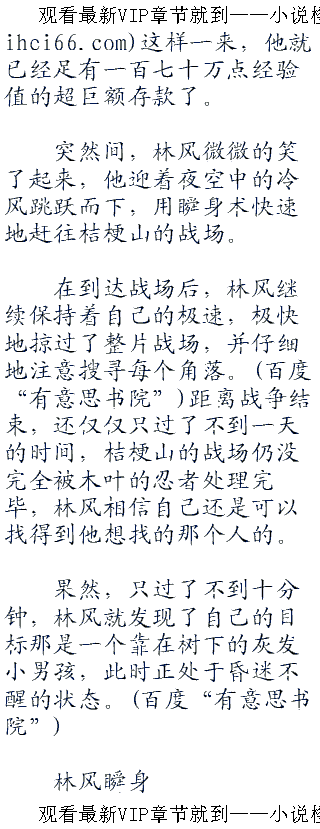 观看最新VIP章节就到——小说检
ihci66.com)这样一来，他就
已经足有一百七十万点经验
值的超巨额存款了。
突然间，林风微微的笑
了起来，他迎着夜空中的冷
风跳跃而下，用瞬身术快速
地赶往桔梗山的战场。
在到达战场后，林风继
续保持着自己的极速，极快
地掠过了整片战场，并仔细
地注意搜寻每个角落。(百度
“有意思书院”)距离战争结
束，还仅仅只过了不到一天
的时间，桔梗山的战场仍没
完全被木叶的忍者处理完
毕，林风相信自己还是可以
找得到他想找的那个人的。
果然，只过了不到十分
钟，林风就发现了自己的目
标那是一个靠在树下的灰发
小男孩，此时正处于昏迷不
醒的状态。(百度“有意思书
院”)
林风瞬身
观看最新VIP章节就到——小说检